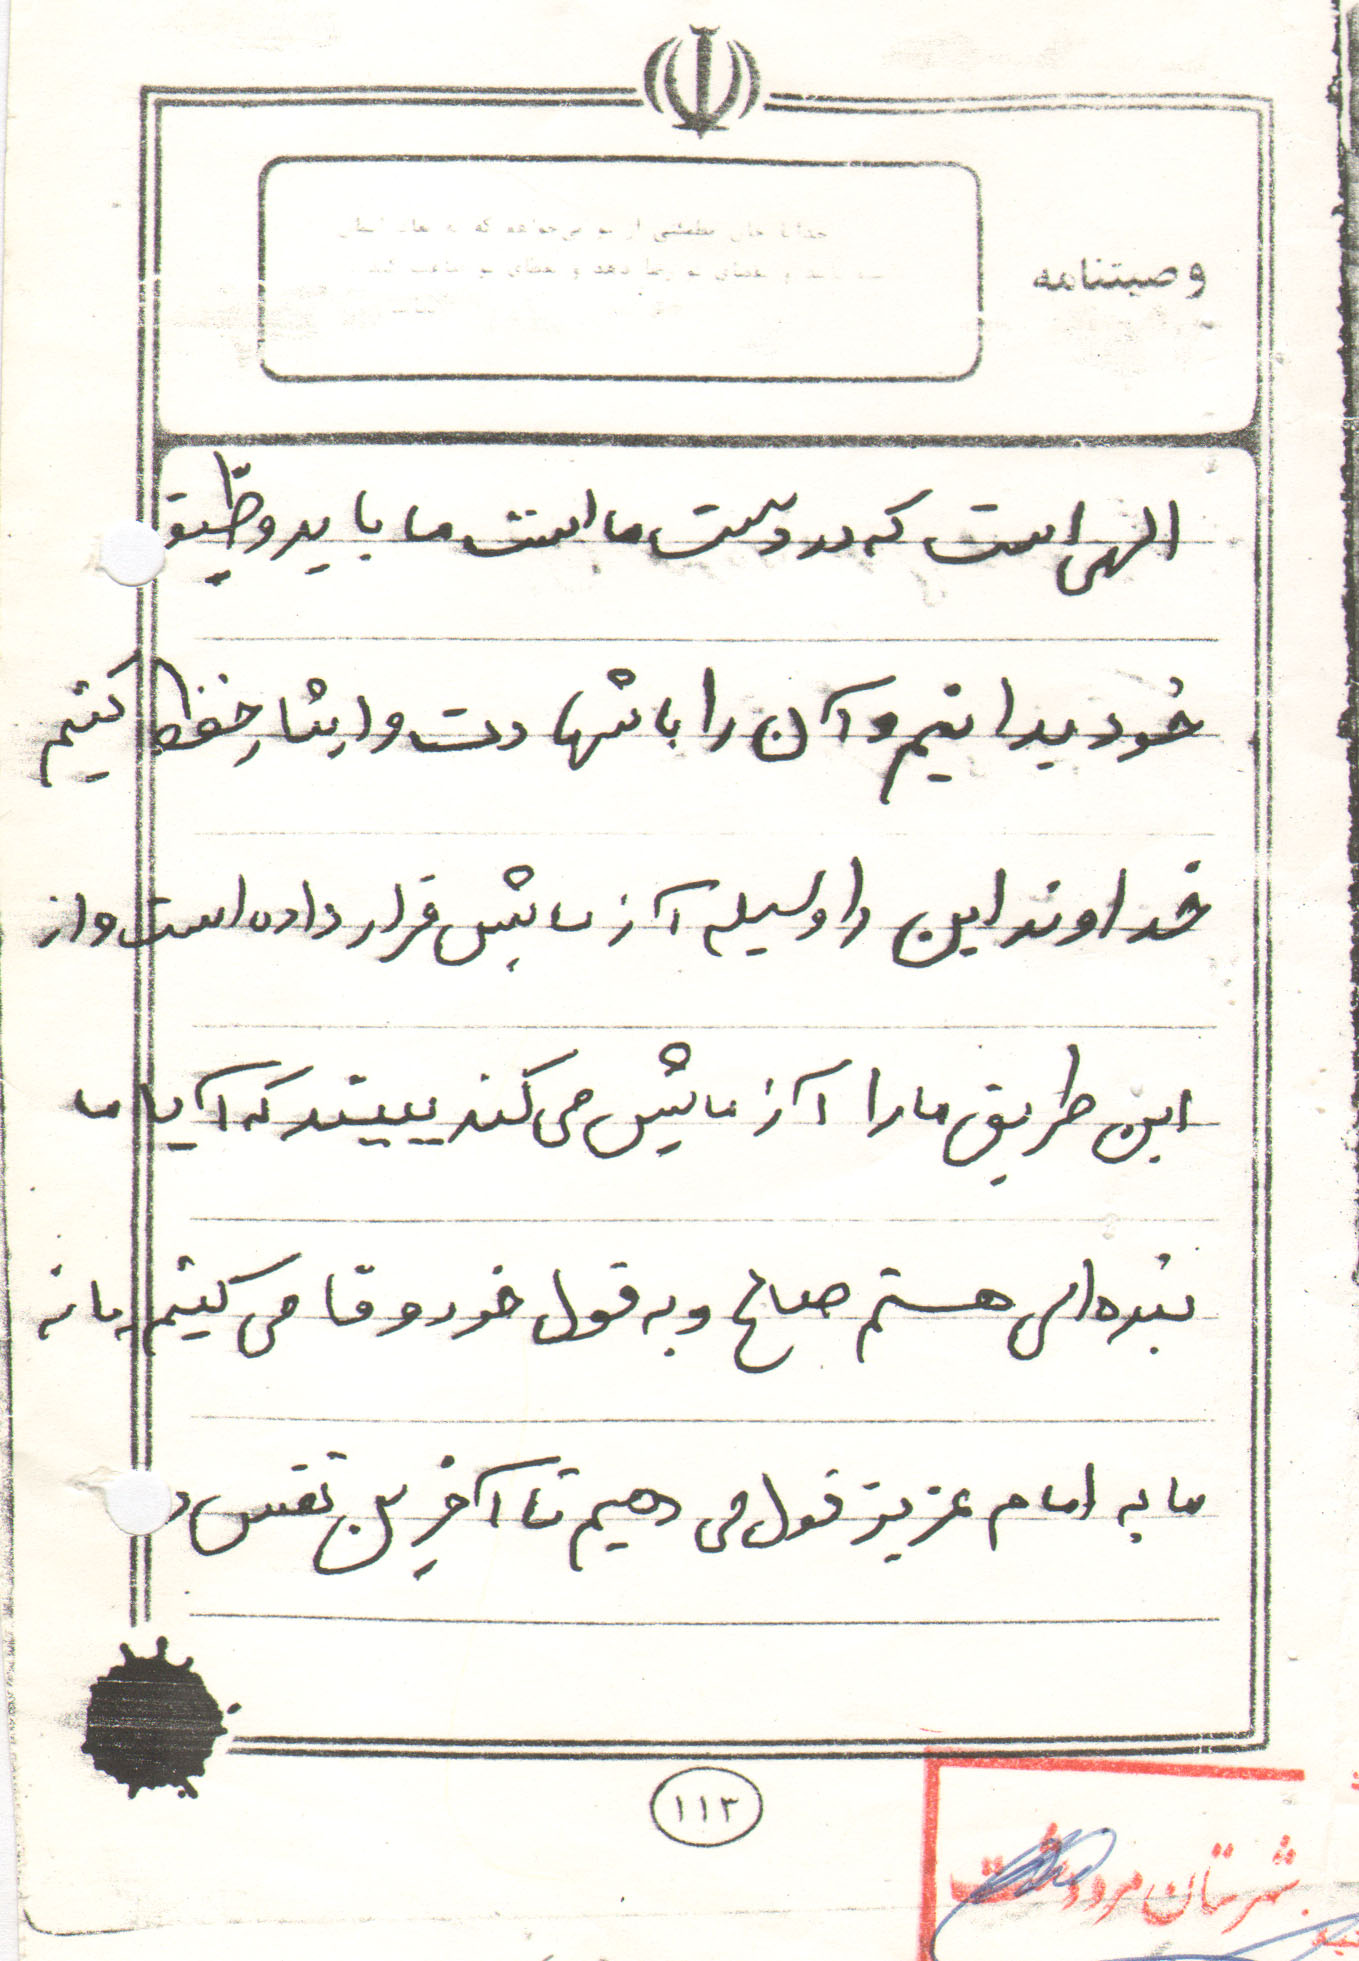 وصیتنامه
الهی است که در دست ما است ما باید وظیفه
خود بدانیم و آن را با شهادت و ایثار حفظ کنیم
خداوند این را وسیله آزمایش قرار داده است و از
این طریق ما را آزمایش می کند ببیند که آیا ما
بنده ای هستم صالح و به قول خود وفا می کنیم یا نه
ما به امام عزیز قول می دهیم تا آخرین نفس
۱۱۳
شهرستان مرودشت